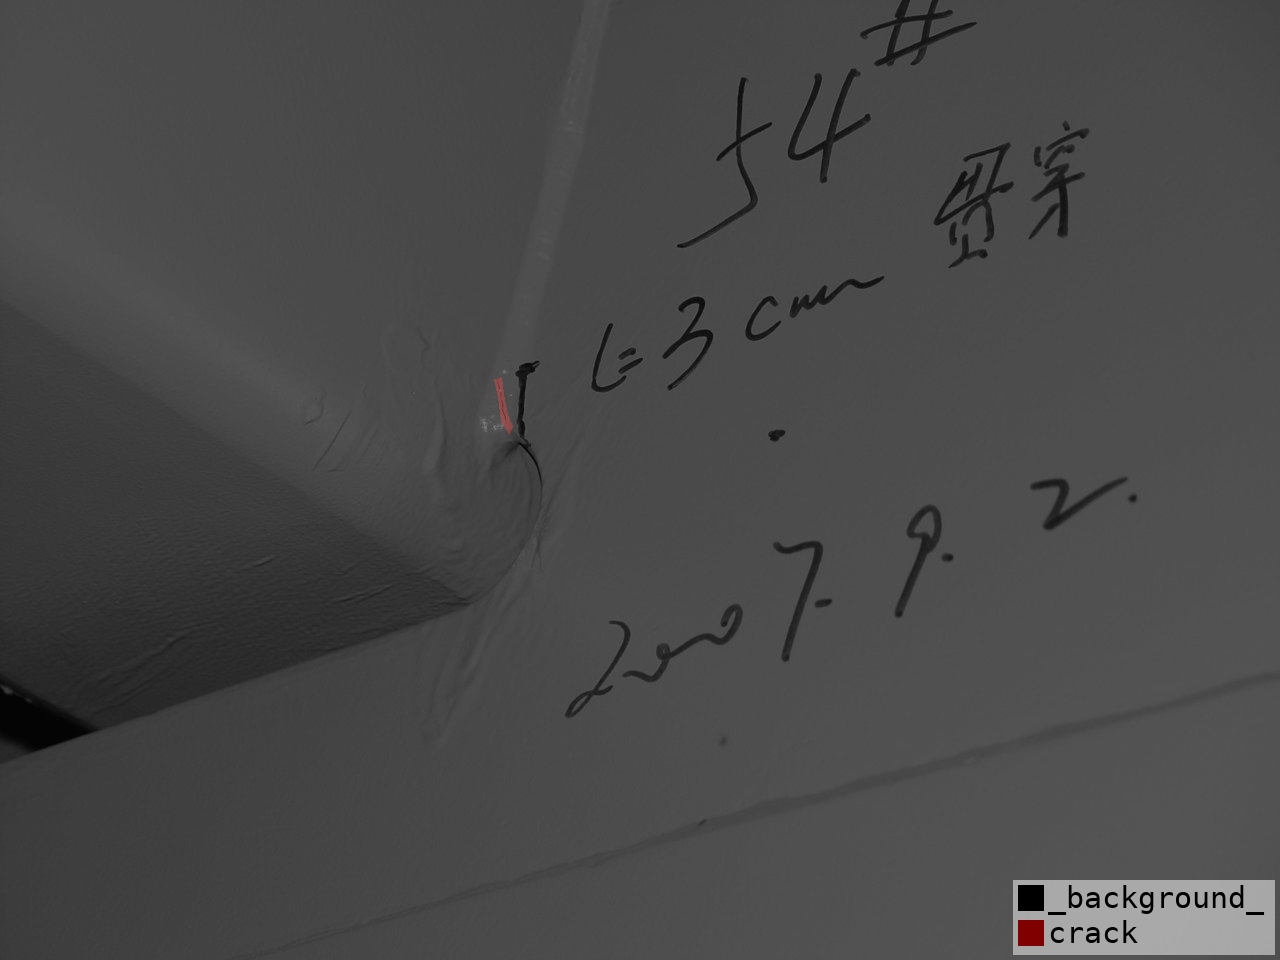 54#
贯穿
L=3cm
2007.9.2.
_background_
crack